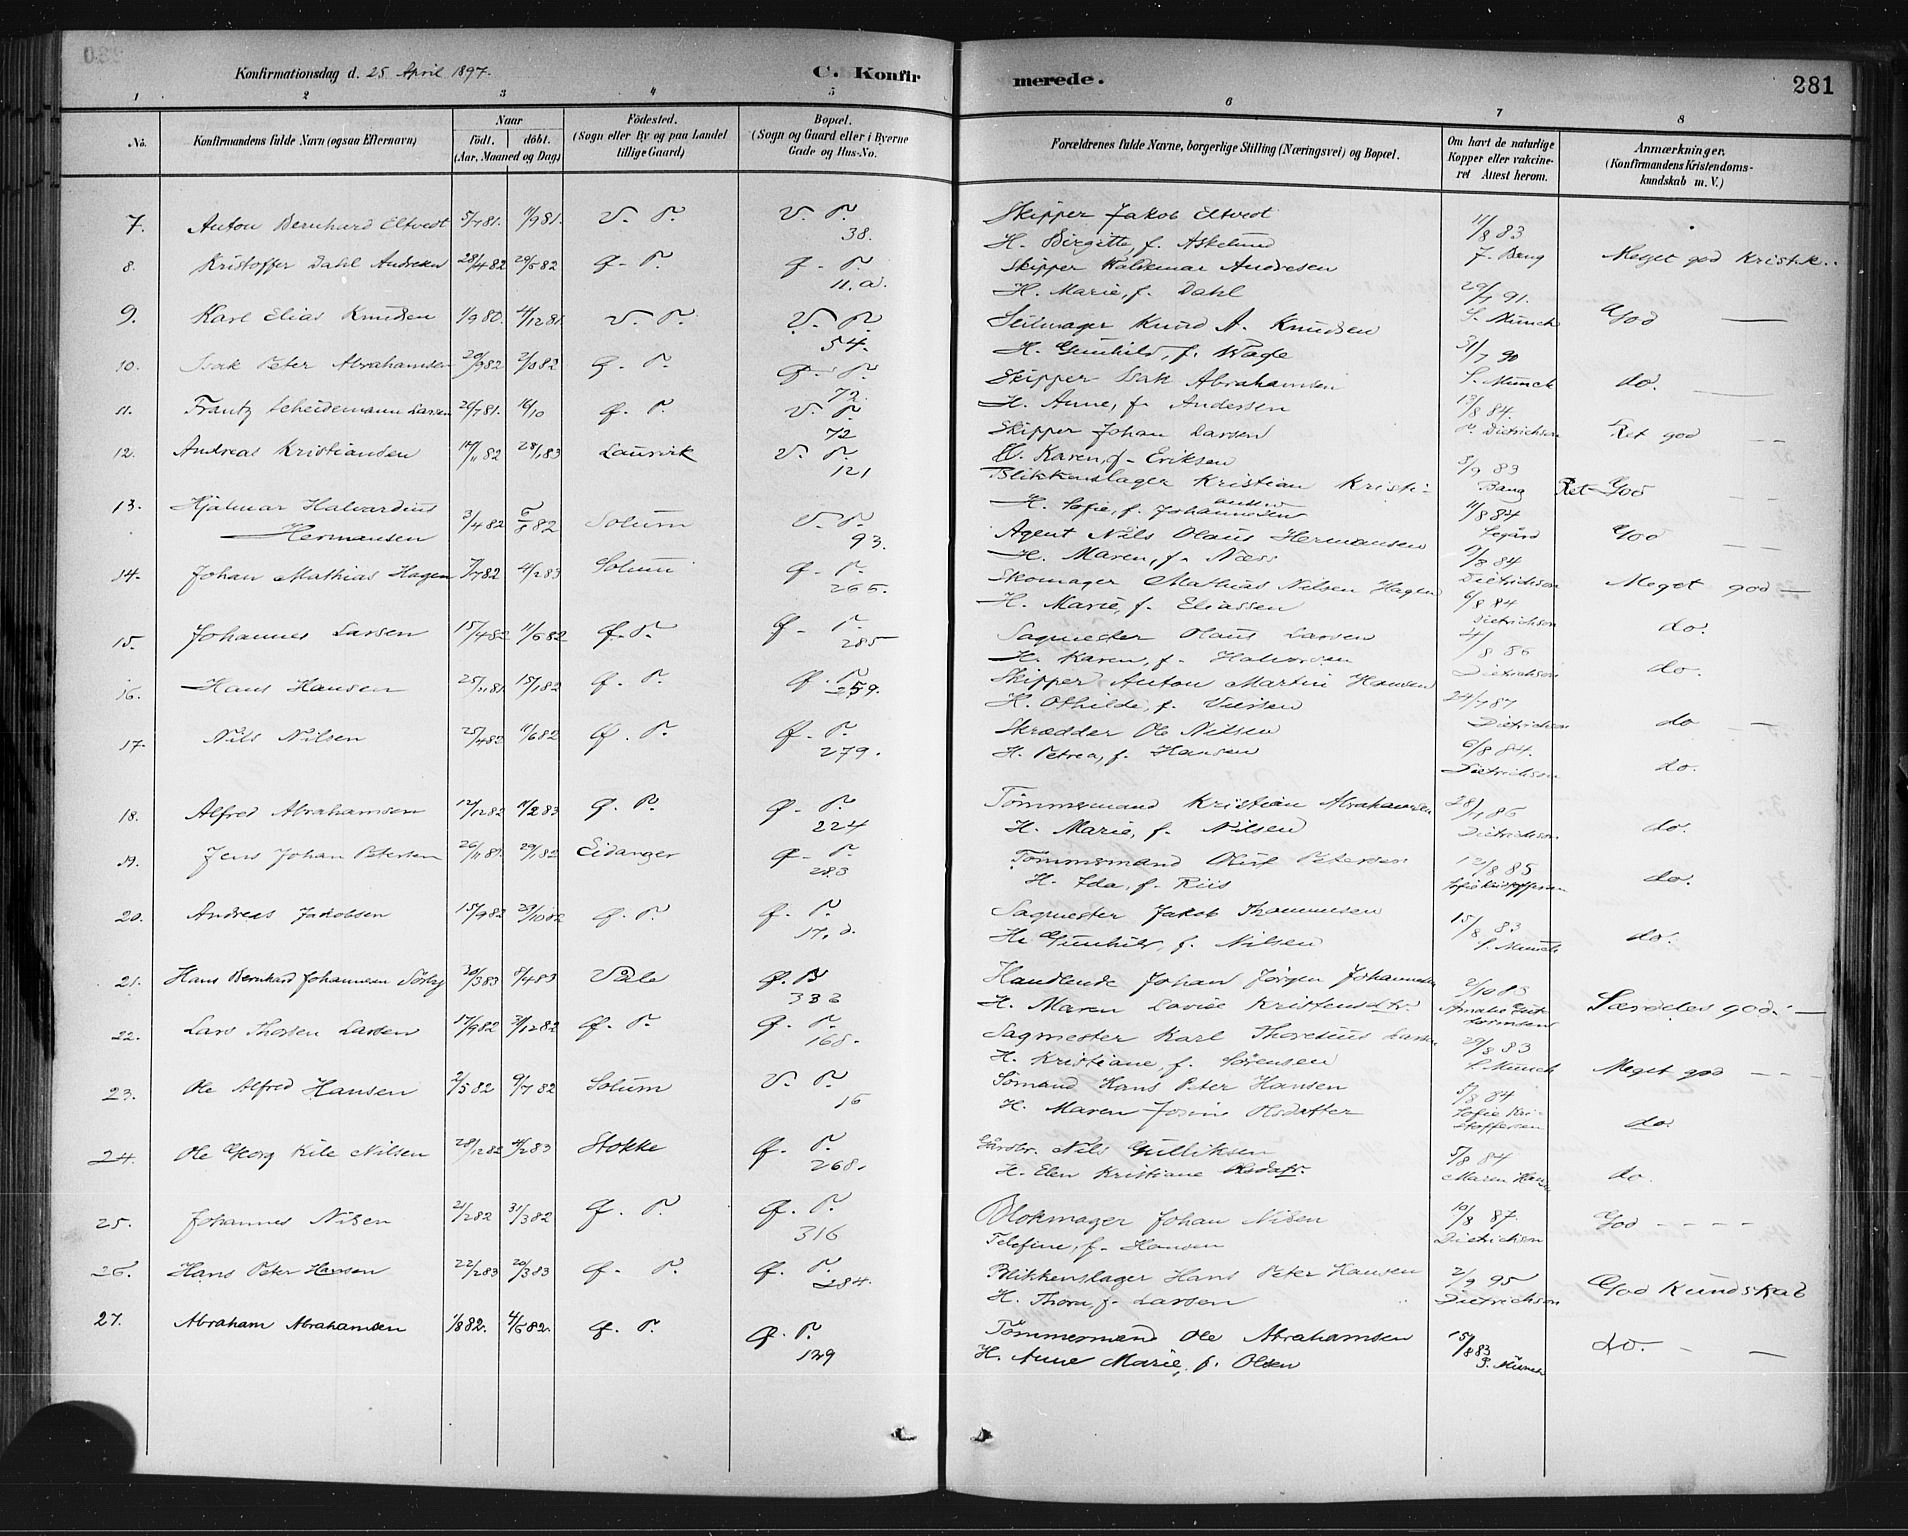 Konfirmationsdag d. 25 April 1897.
C. Konfirmerede.
281
1 2 3 4 5 6 7 8
No.
Konfirmandens fulde Navn (ogsaa Efternavn)
Naar
födt. döbt.
(Aar, Maaned og Dag)
Födested.
(Sogn eller By og paa Landet tillige Gaard)
Bopæl.
(Sogn og Gaard eller i Byerne Gade og Hus-No.
Forældrenes fulde Navne, borgerlige Stilling (Næringsvei) og Bopæl.
Om havt de naturlige Kopper eller vakcineret Attest herom.
Anmærkninger.
(Konfirmandens Kristendomskundskab m. V.)
7. Anton Bernhard Eltvedt 5/7 81. 11/9 81. V. P. V. P. 38. Skipper Jakob Eltvedt 11/8 83
H. Birgitte, f. Askelund
8. Kristoffer Dahl Andresen 28/4 82 29/5 82 Ø. P. Ø. P. 11.a. Skipper Valdemar Andresen J. Bang Meget god Kristk.
H. Marie, f. Dahl 29/7 91.
9. Karl Elias Knudsen 1/9 80. V. P. V. P. 54. Seilmager Knud A. Knudsen S. Munch God
H. Gunhild, f. Wage 31/7 90
10. Isak Peter Abrahamsen Ø. P. Ø. P. 72. Skipper Isak Abrahamsen S. Munch do.
H. Anne, f. Andersen
11. Frantz Scheidemann Larsen 26/7 81. 16/10 Ø. P. V. P. 72 Skipper Johan Larsen Dietrichson Ret god
H. Karen, f. Eriksen
12. Andreas Kristiansen 28/1 83 Laurvik V. P. 121 Blikkenslager Kristian Kristiansen 5/9 83 Bang Ret God
H. Sofie, f. Johannesen 11/8 84
13. Hjalmar Halvardius Hermansen 3/4 82 Solum V. P. 93. Agent Nils Olaus Hermansen God
H. Maren, f. Næss
14. Johan Mathias Hagen 7/7 82 4/2 83 Solum Ø. P. 265. Skomager Mathias Nilsen Hagen Dietrichson Meget god
H. Marie, f. Eliassen 6/8 84
15. Johannes Larsen 15/4 82 11/6 82 Ø. P. Ø. P. 285 Sagmester Olaus Larsen Dietrichson do.
H. Karen, f. Halvorsen
16. Hans Hansen 25/11 81. 15/1 82 Ø. P. Ø. P. 259. Skipper Anton Martin Hansen Dietrichson do.
H. Othilde, f. 24/7 87
17. Nils Nilsen 25/4 82 11/6 82 Ø. P. Ø. P. 279. Skrædder Ole Nilsen Dietrichson do
H. Petrea, f. Hansen 6/8 84. Dietrichson do.
18. Alfred Abrahamsen 12/12 82 11/2 83 Ø. P. Ø. P. 224 Tömmermand Kristian Abrahamsen
H. Marie, f. Nilsen Dietrichson do.
19. Jens Johan Petersen 26/11 81 29/1 82 Eidanger Ø. P. 283 Tömmermand Oluf Petersen 12/8 85
H. Ida, f. Riis Sofie Kristoffersen do.
20. Andreas Jakobsen 15/9 82 29/10 82 Ø. P. Ø. P. 17.d. Sagmester Jakob Thommesen 15/8 83
H. Gunhild, f. Nilsen S. Munch do.
21. Hans Bernhard Johannesen Sörby 30/3 83 8/4 83 Våle Ø. P. 333 Handlende Johan Jörgen Johannesen 2/10 83
H. Maren Lovise Kristensdtr. Særdeles god.
22. Lars Thorsen Larsen 17/9 82 31/12 82 Ø. P. Ø. P. 168. Sagmester Karl Thoretius Larsen 29/8 83
H. Kristiane, f. Sörensen S. Munch Meget god
23. Ole Alfred Hansen 2/5 82 9/7 82 Solum V. P. 15 Sömand Hans Peter Hansen 5/8 84
H. Maren Olsdatter Sofie Kristoffersen do.
24. Ole Georg Kile Nilsen 28/12 82 4/2 83 Stokke Ø. P. 268. Gårdbr. Nils Gulliksen 5/8 84
H. Elen Kristiane Olsdatr. Maren Hansen do.
25. Johannes Nilsen 2/2 82 31/3 82 Ø. P. Ø. P. 316 Blokmager Johan Nilsen 19/8 87. God
Telefine, f. Hansen Dietrichson
26. Hans Peter Hansen 22/2 83 20/3 83 Ø. P. Ø. P. 284. Blikkenslager Hans Peter Hansen 2/9 95 God Kundskab
H. Thora, f. Larsen Dietrichson
27. Abraham Abrahamsen 4/6 82. Ø. P. Ø. P. 129 Tömmermand Ole Abrahamsen 15/8 83 do.
H. Anne Marie, f. Olsen S. Munch